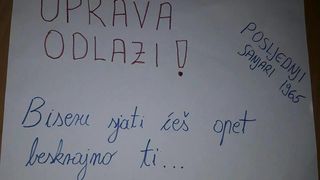 UPRAVA
ODLAZI!
POSLJEDNJI
SANJARI 1965
Biseru sjati ćeš opet
beskrajno ti...